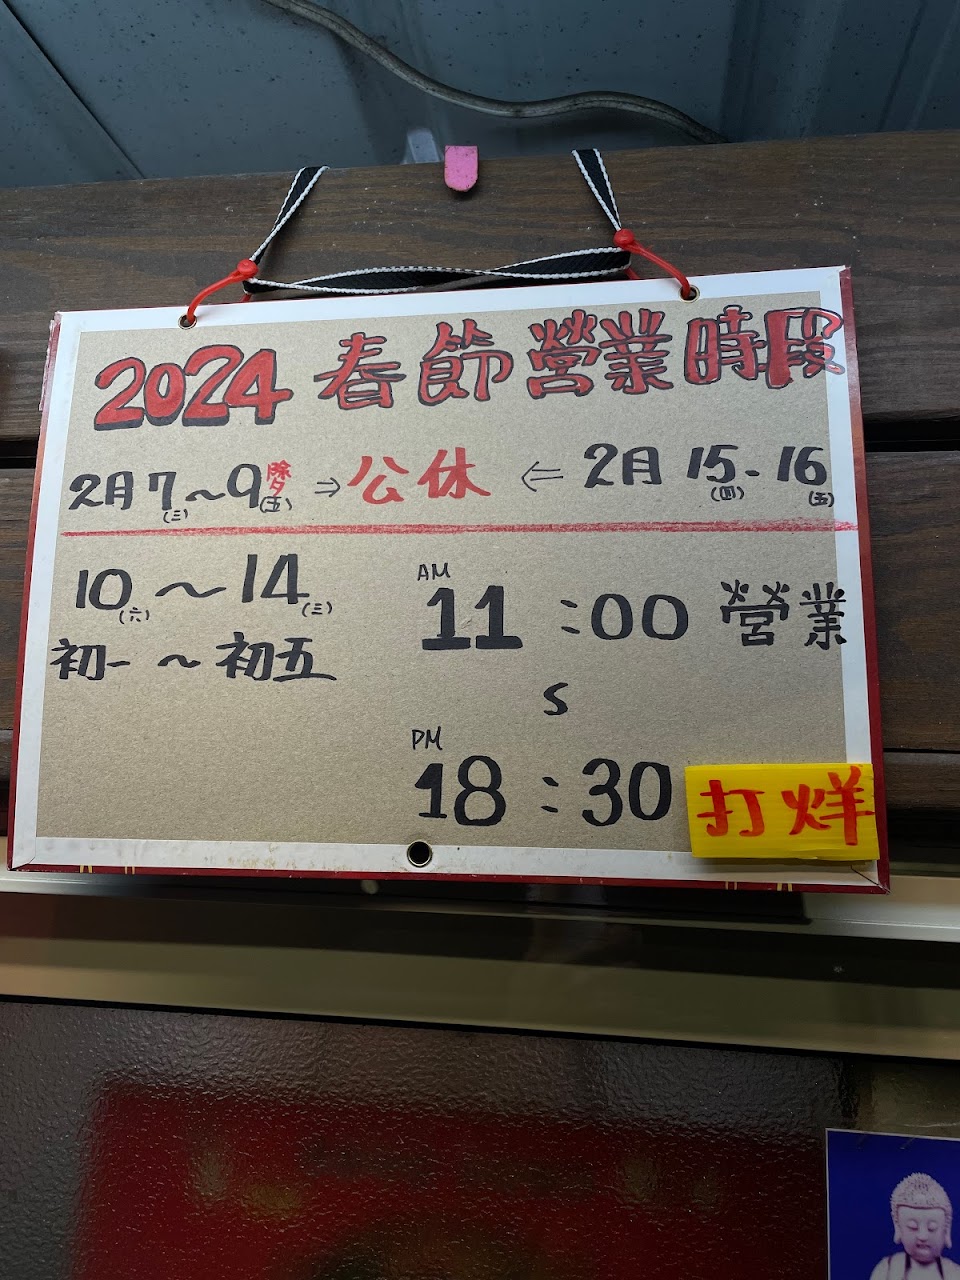 2024 春節營業時段
2月7(三)~9除夕(五) ⇒ 公休 ⇐ 2月 15(四)-16(五)
10(六)~14(三)
初一~初五
AM
11:00 營業
S
PM
18:30 打烊